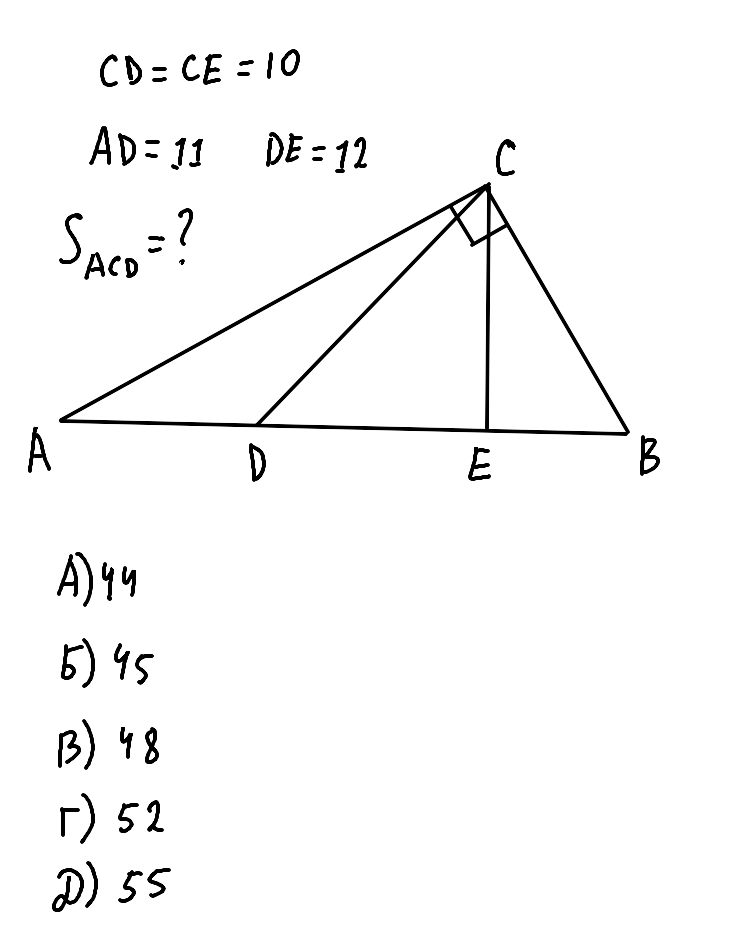 CD = CE = 10
AD = 11 DE = 12
S_ACD = ?
C
A D E B
А) 44
Б) 45
В) 48
Г) 52
Д) 55